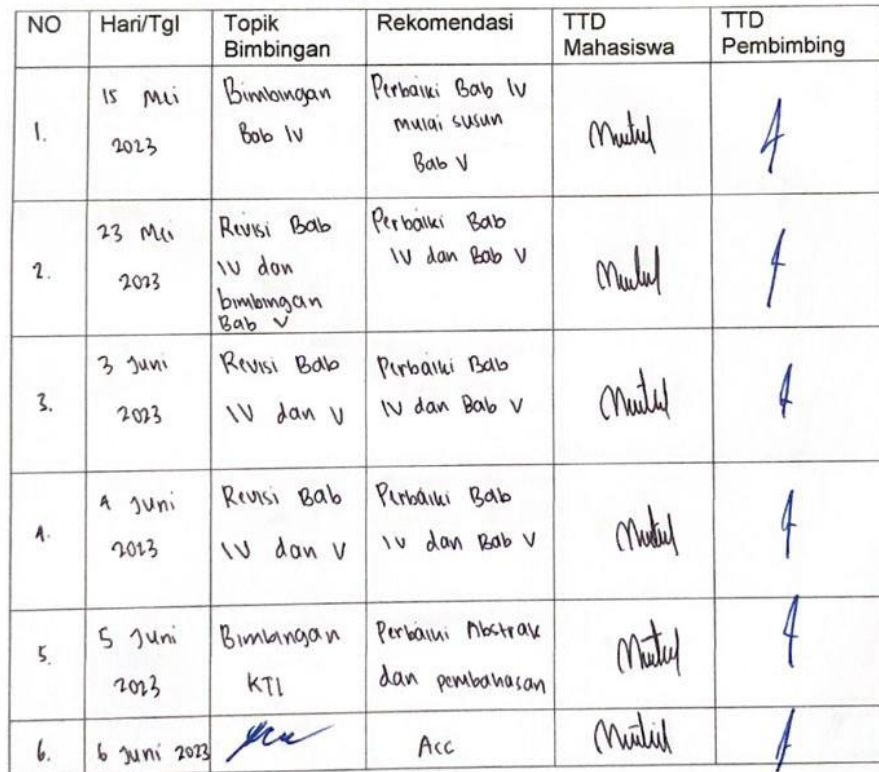 NO Hari/Tgl Topik Bimbingan Rekomendasi TTD Mahasiswa TTD Pembimbing
1.
15 Mei
2023
Bimbingan
Bab IV
Perbaiki Bab IV
mulai susun
Bab V
2.
23 Mei
2023
Revisi Bab
IV dan
bimbingan
Bab V
Perbaiki Bab
IV dan Bab V
3.
3 Juni
2023
Revisi Bab
IV dan V
Perbaiki Bab
IV dan Bab V
4.
4 Juni
2023
Revisi Bab
IV dan V
Perbaiki Bab
IV dan Bab V
5.
5 Juni
2023
Bimbingan
KTI
Perbaiki Abstrak
dan pembahasan
6.
6 Juni 2023
Acc